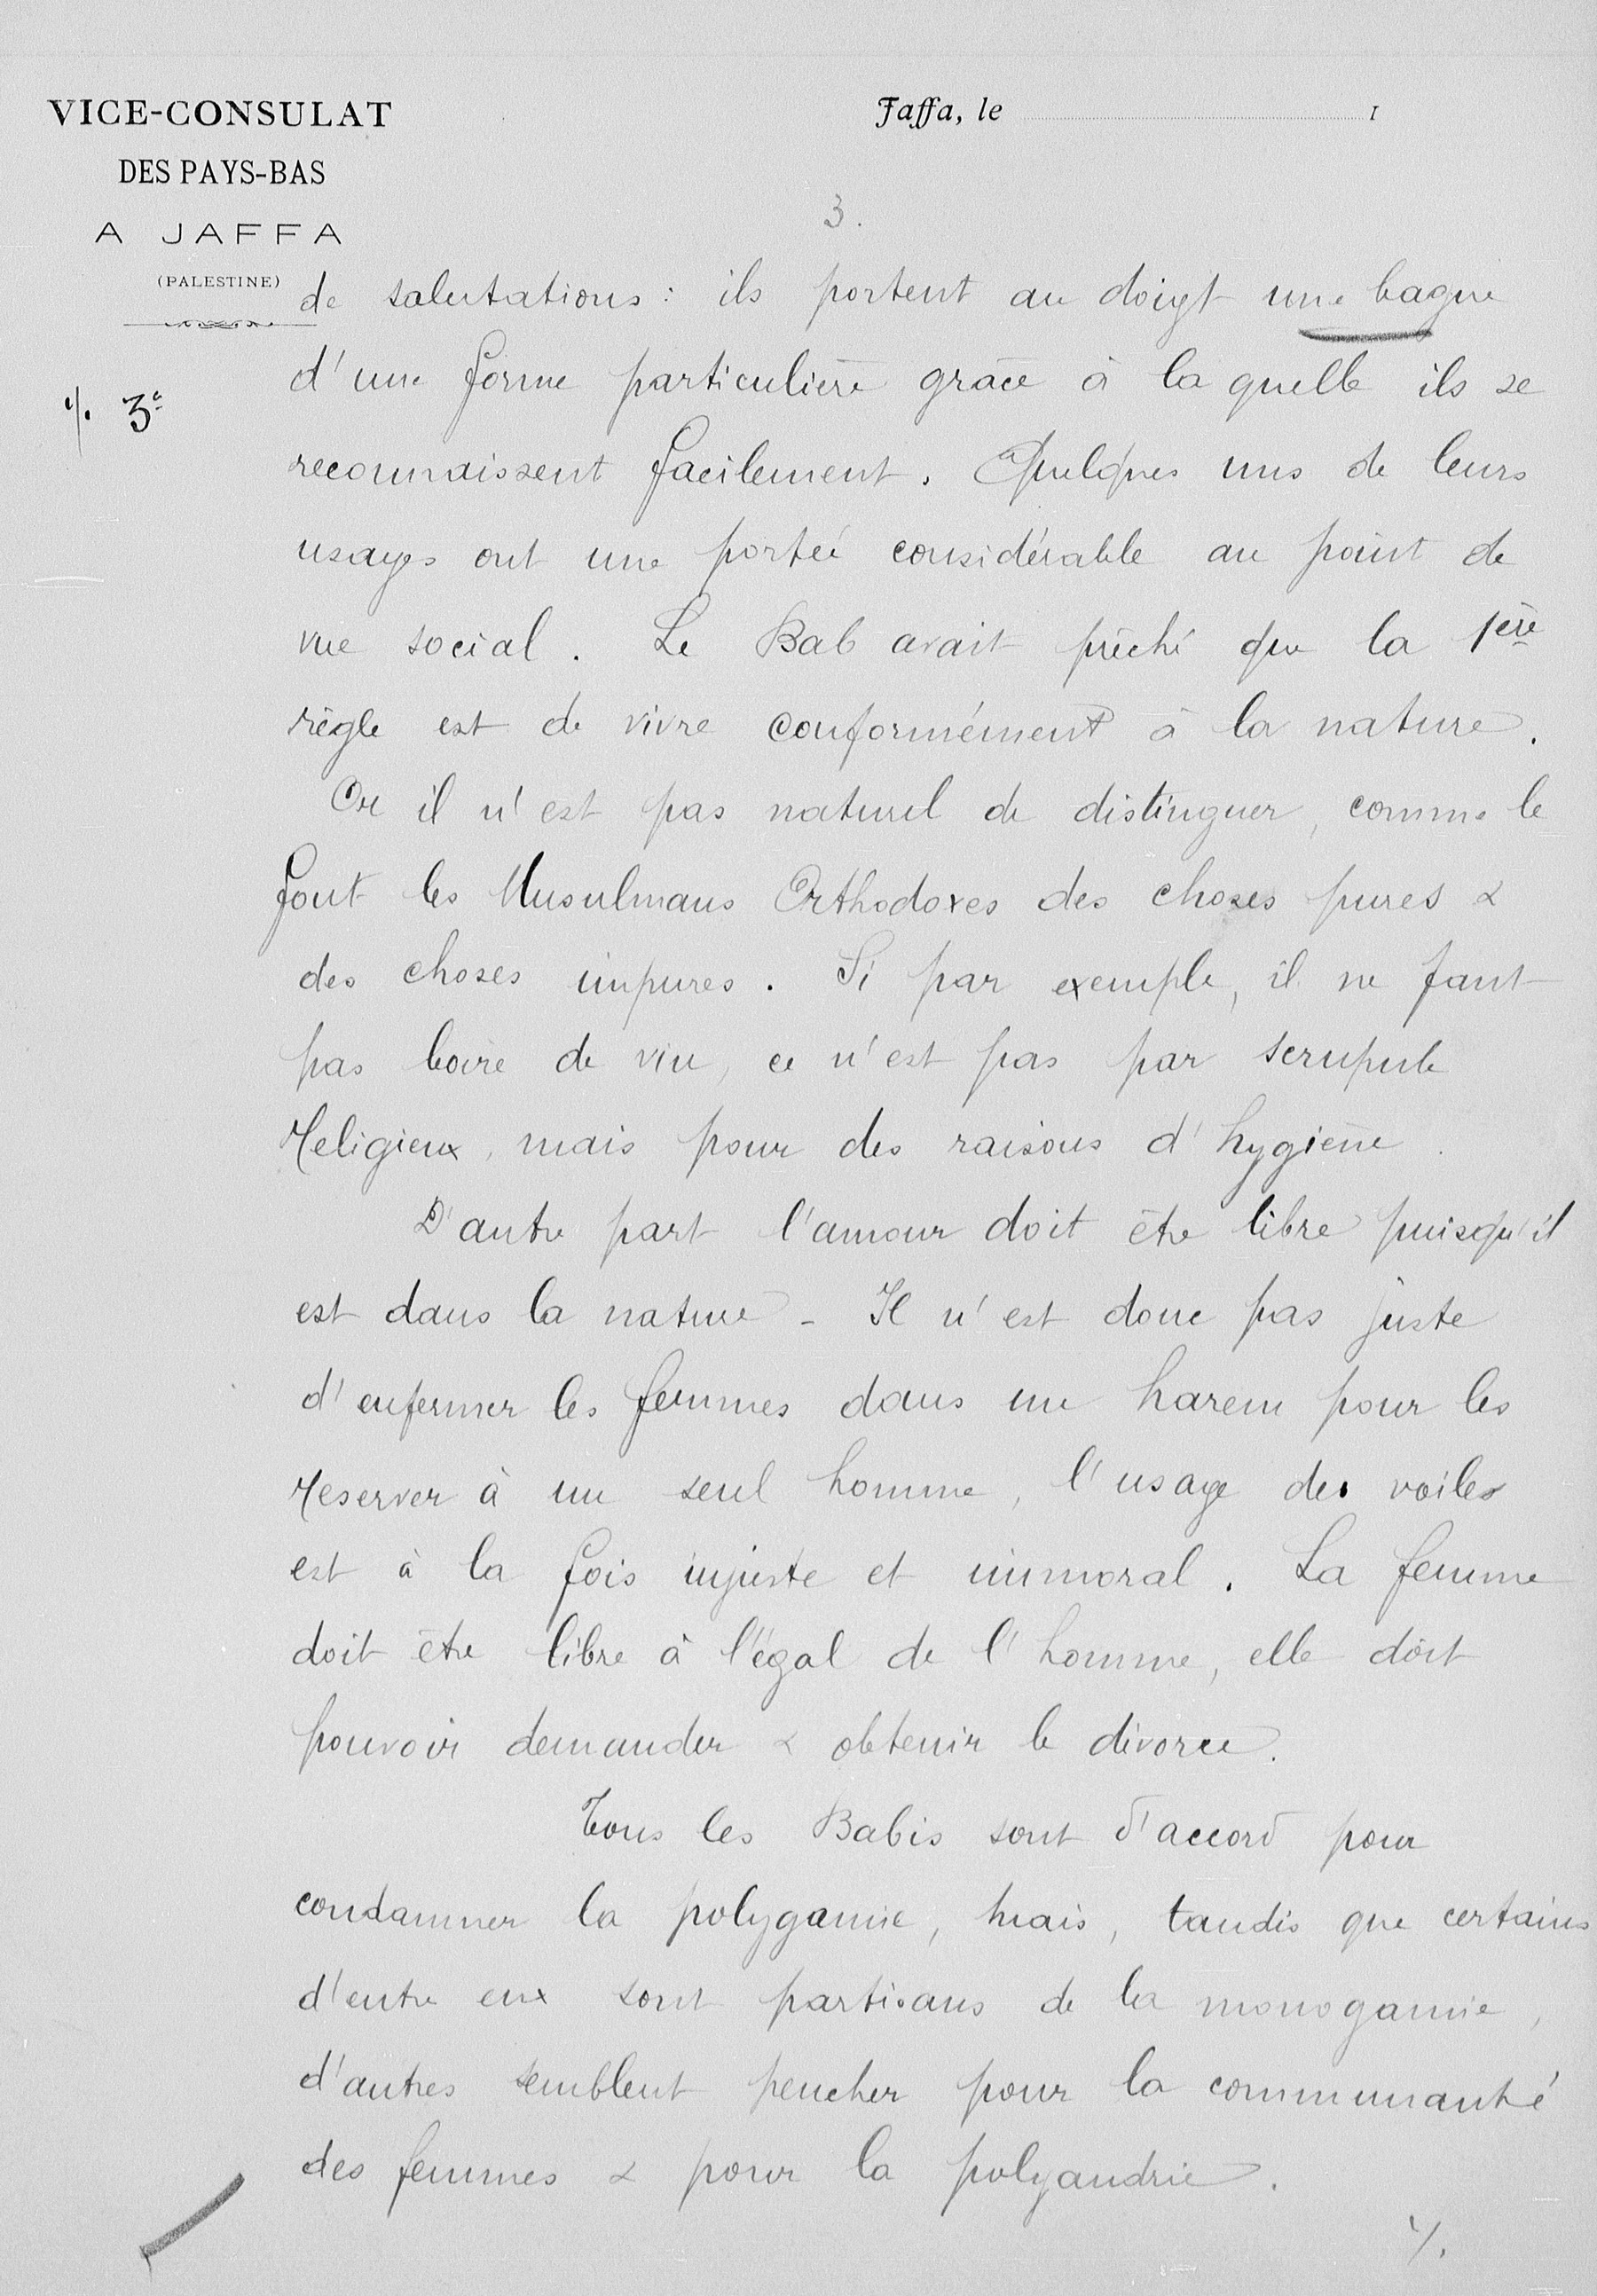 VICE-CONSULAT
DES PAYS-BAS
A JAFFA
(PALESTINE)
Jaffa, le 1
3.
·/. 3e
de salutations : ils portent au doigt une bague
d'une forme particulière grâce à la quelle ils se
reconnaissent facilement. Quelques uns de leurs
usages ont une portée considérable au point de
vue social. Le Bab avait prêché que la 1ère
règle est de vivre conformément à la nature.
Or il n'est pas naturel de distinguer, comme le
font les Musulmans Orthodoxes des choses pures &
des choses impures. Si par exemple, il ne faut
pas boire de vin, ce n'est pas par scrupule
Religieux, mais pour des raisons d'hygiène.
D'autre part l'amour doit être libre puisqu'il
est dans la nature - Il n'est donc pas juste
d'enfermer les femmes dans un harem pour les
reserver à un seul homme, l'usage des voiles
est à la fois injuste et immoral. La femme
doit être libre à l'égal de l'homme, elle doit
pouvoir demander & obtenir le divorce.
Tous les Babis sont d'accord pour
condamner la polygamie, mais, tandis que certains
d'entre eux sont partisans de la monogamie,
d'autres semblent pencher pour la communauté
des femmes & pour la polyandrie.
·/.